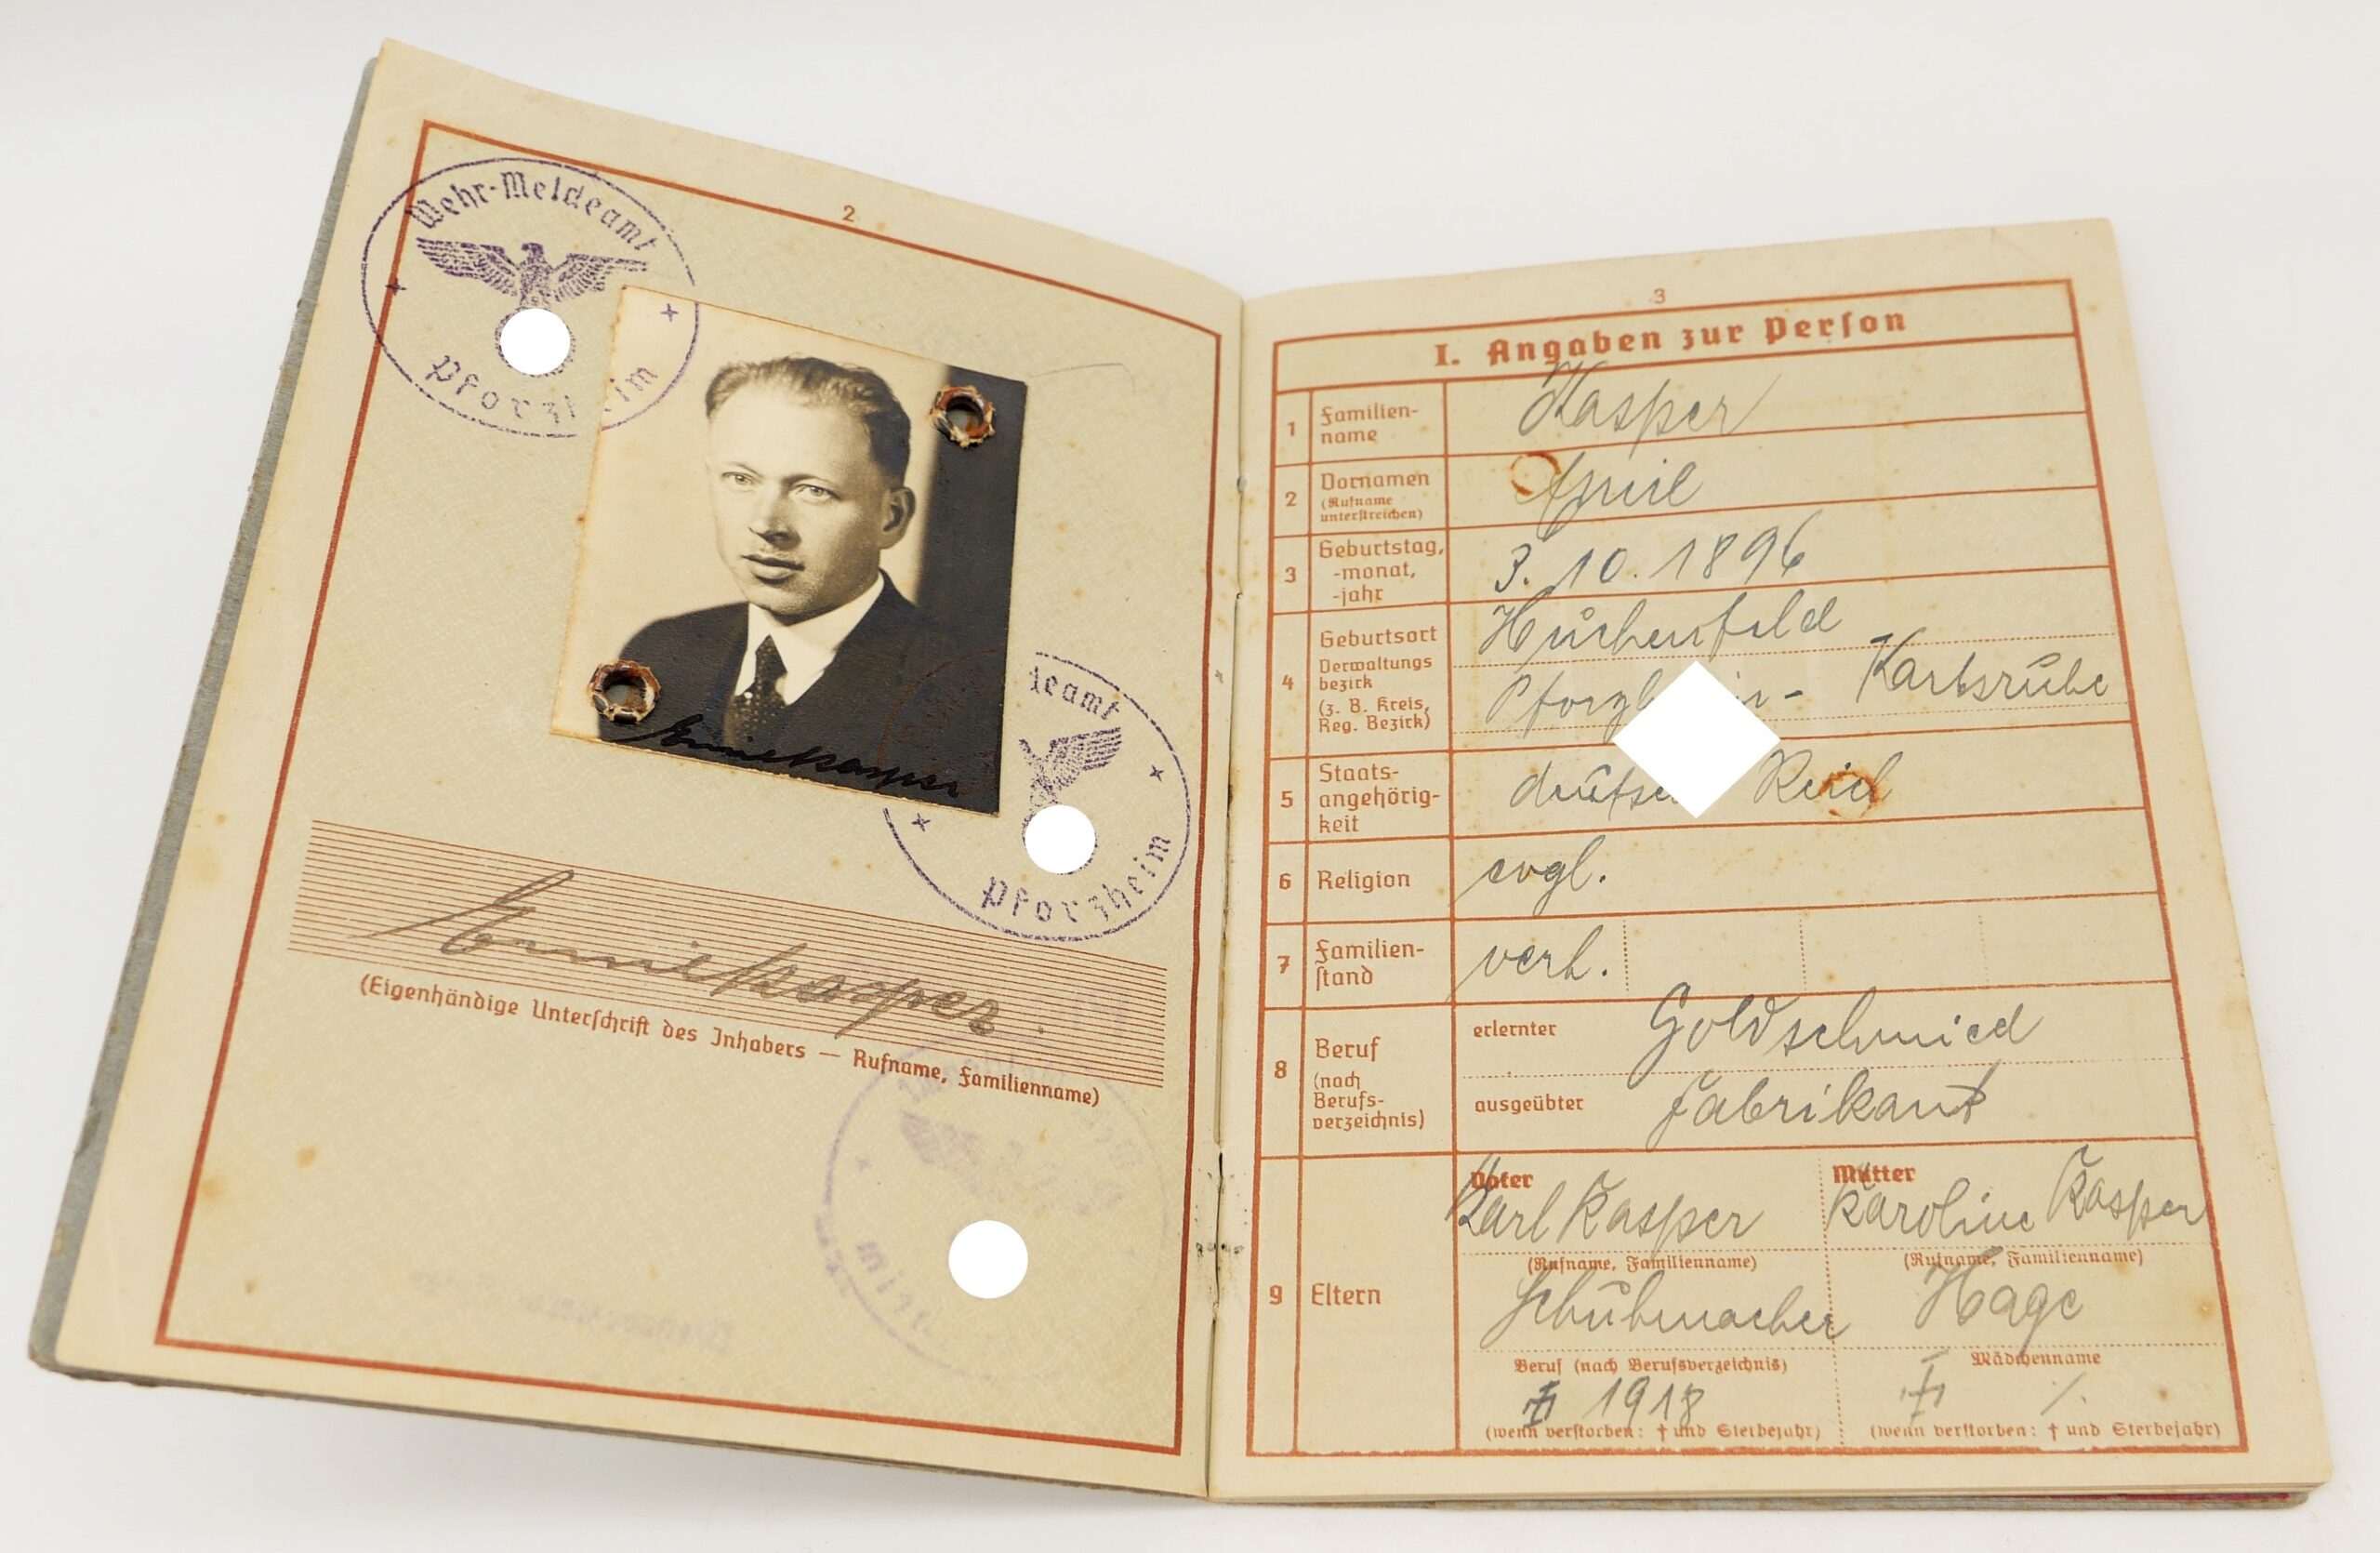 2
Wehr-Meldeamt
Pforzheim
Wehr-Meldeamt
Pforzheim
(Eigenhändige Unterschrift des Inhabers — Rufname, Familienname)
3
I. Angaben zur Person
1 Familien-
name
Kasper
2 Vornamen
(Rufname
unterstreichen)
3 Geburtstag,
-monat,
-jahr
3. 10. 1896
4 Geburtsort
Verwaltungs
bezirk
(z. B. Kreis,
Reg. Bezirk)
Huchenfeld
Karlsruhe
5 Staats-
angehörig-
keit
Reich
6 Religion
evgl.
7 Familien-
stand
verh.
8 Beruf
(nach
Berufs-
verzeichnis)
erlernter Goldschmied
ausgeübter Fabrikant
9 Eltern
Vater Mutter
Karl Kasper Karoline Kasper
(Rufname, Familienname) (Rufname, Familienname)
Schuhmacher Hage
Beruf (nach Berufsverzeichnis) Mädchenname
† 1918 † ⁒
(wenn verstorben: † und Sterbejahr) (wenn verstorben: † und Sterbejahr)